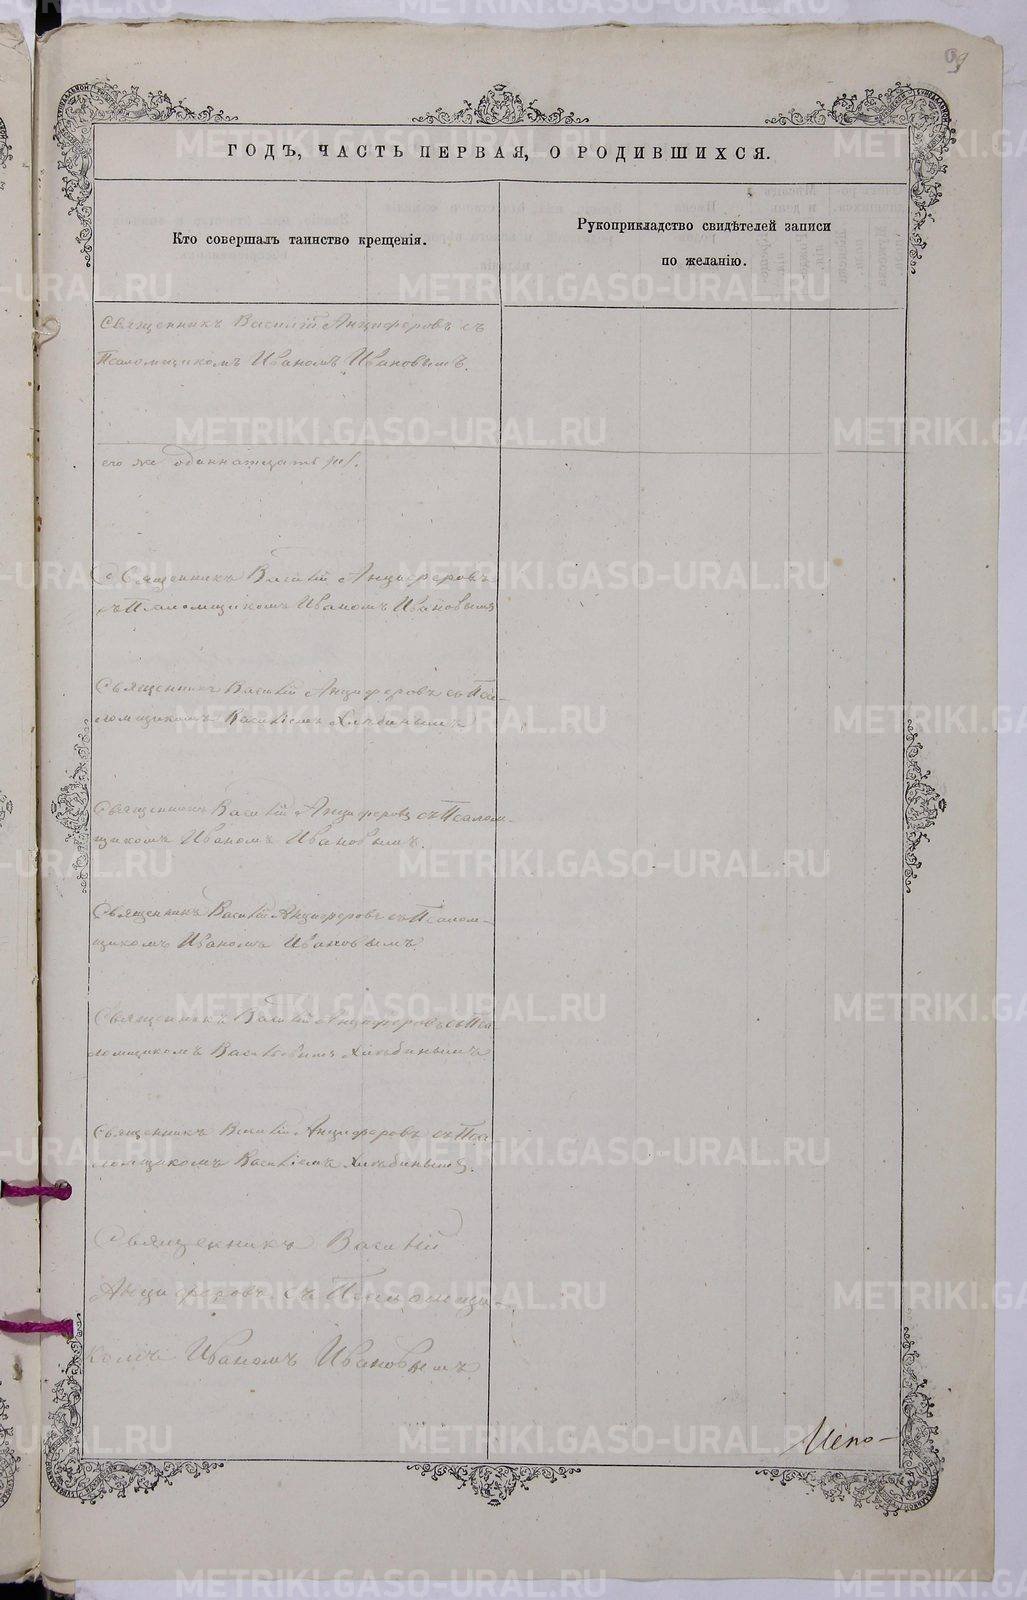 99
ГОДЪ, ЧАСТЬ ПЕРВАЯ, О РОДИВШИХСЯ.
Кто совершалъ таинство крещенія.
Рукоприкладство свидѣтелей записи
по желанію.
Священникъ Василій Анциферовъ съ
Псаломщикомъ Иваномъ Ивановымъ.
его же одиннатцать
Священникъ Василій Анциферовъ
съ Псаломщикомъ Иваномъ Ивановымъ
Священникъ Василій Анциферовъ съ Пса-
ломщикомъ Василіемъ Хлѣбинымъ
Священникъ Василій Анциферовъ съ Псалом-
щикомъ Иваномъ Ивановымъ.
Священникъ Василій Анциферовъ съ Псалом-
щикомъ Иваномъ Ивановымъ.
Священникъ Василій Анциферовъ съ Пса
ломщикомъ Хлѣбинымъ
Священникъ Василій Анциферовъ съ Пса
ломщикомъ Василіемъ Хлѣбинымъ.
Священникъ Василій
Анциферовъ съ Псаломщи-
комъ Иваномъ Ивановымъ
METRIKI.GASO-URAL.RU